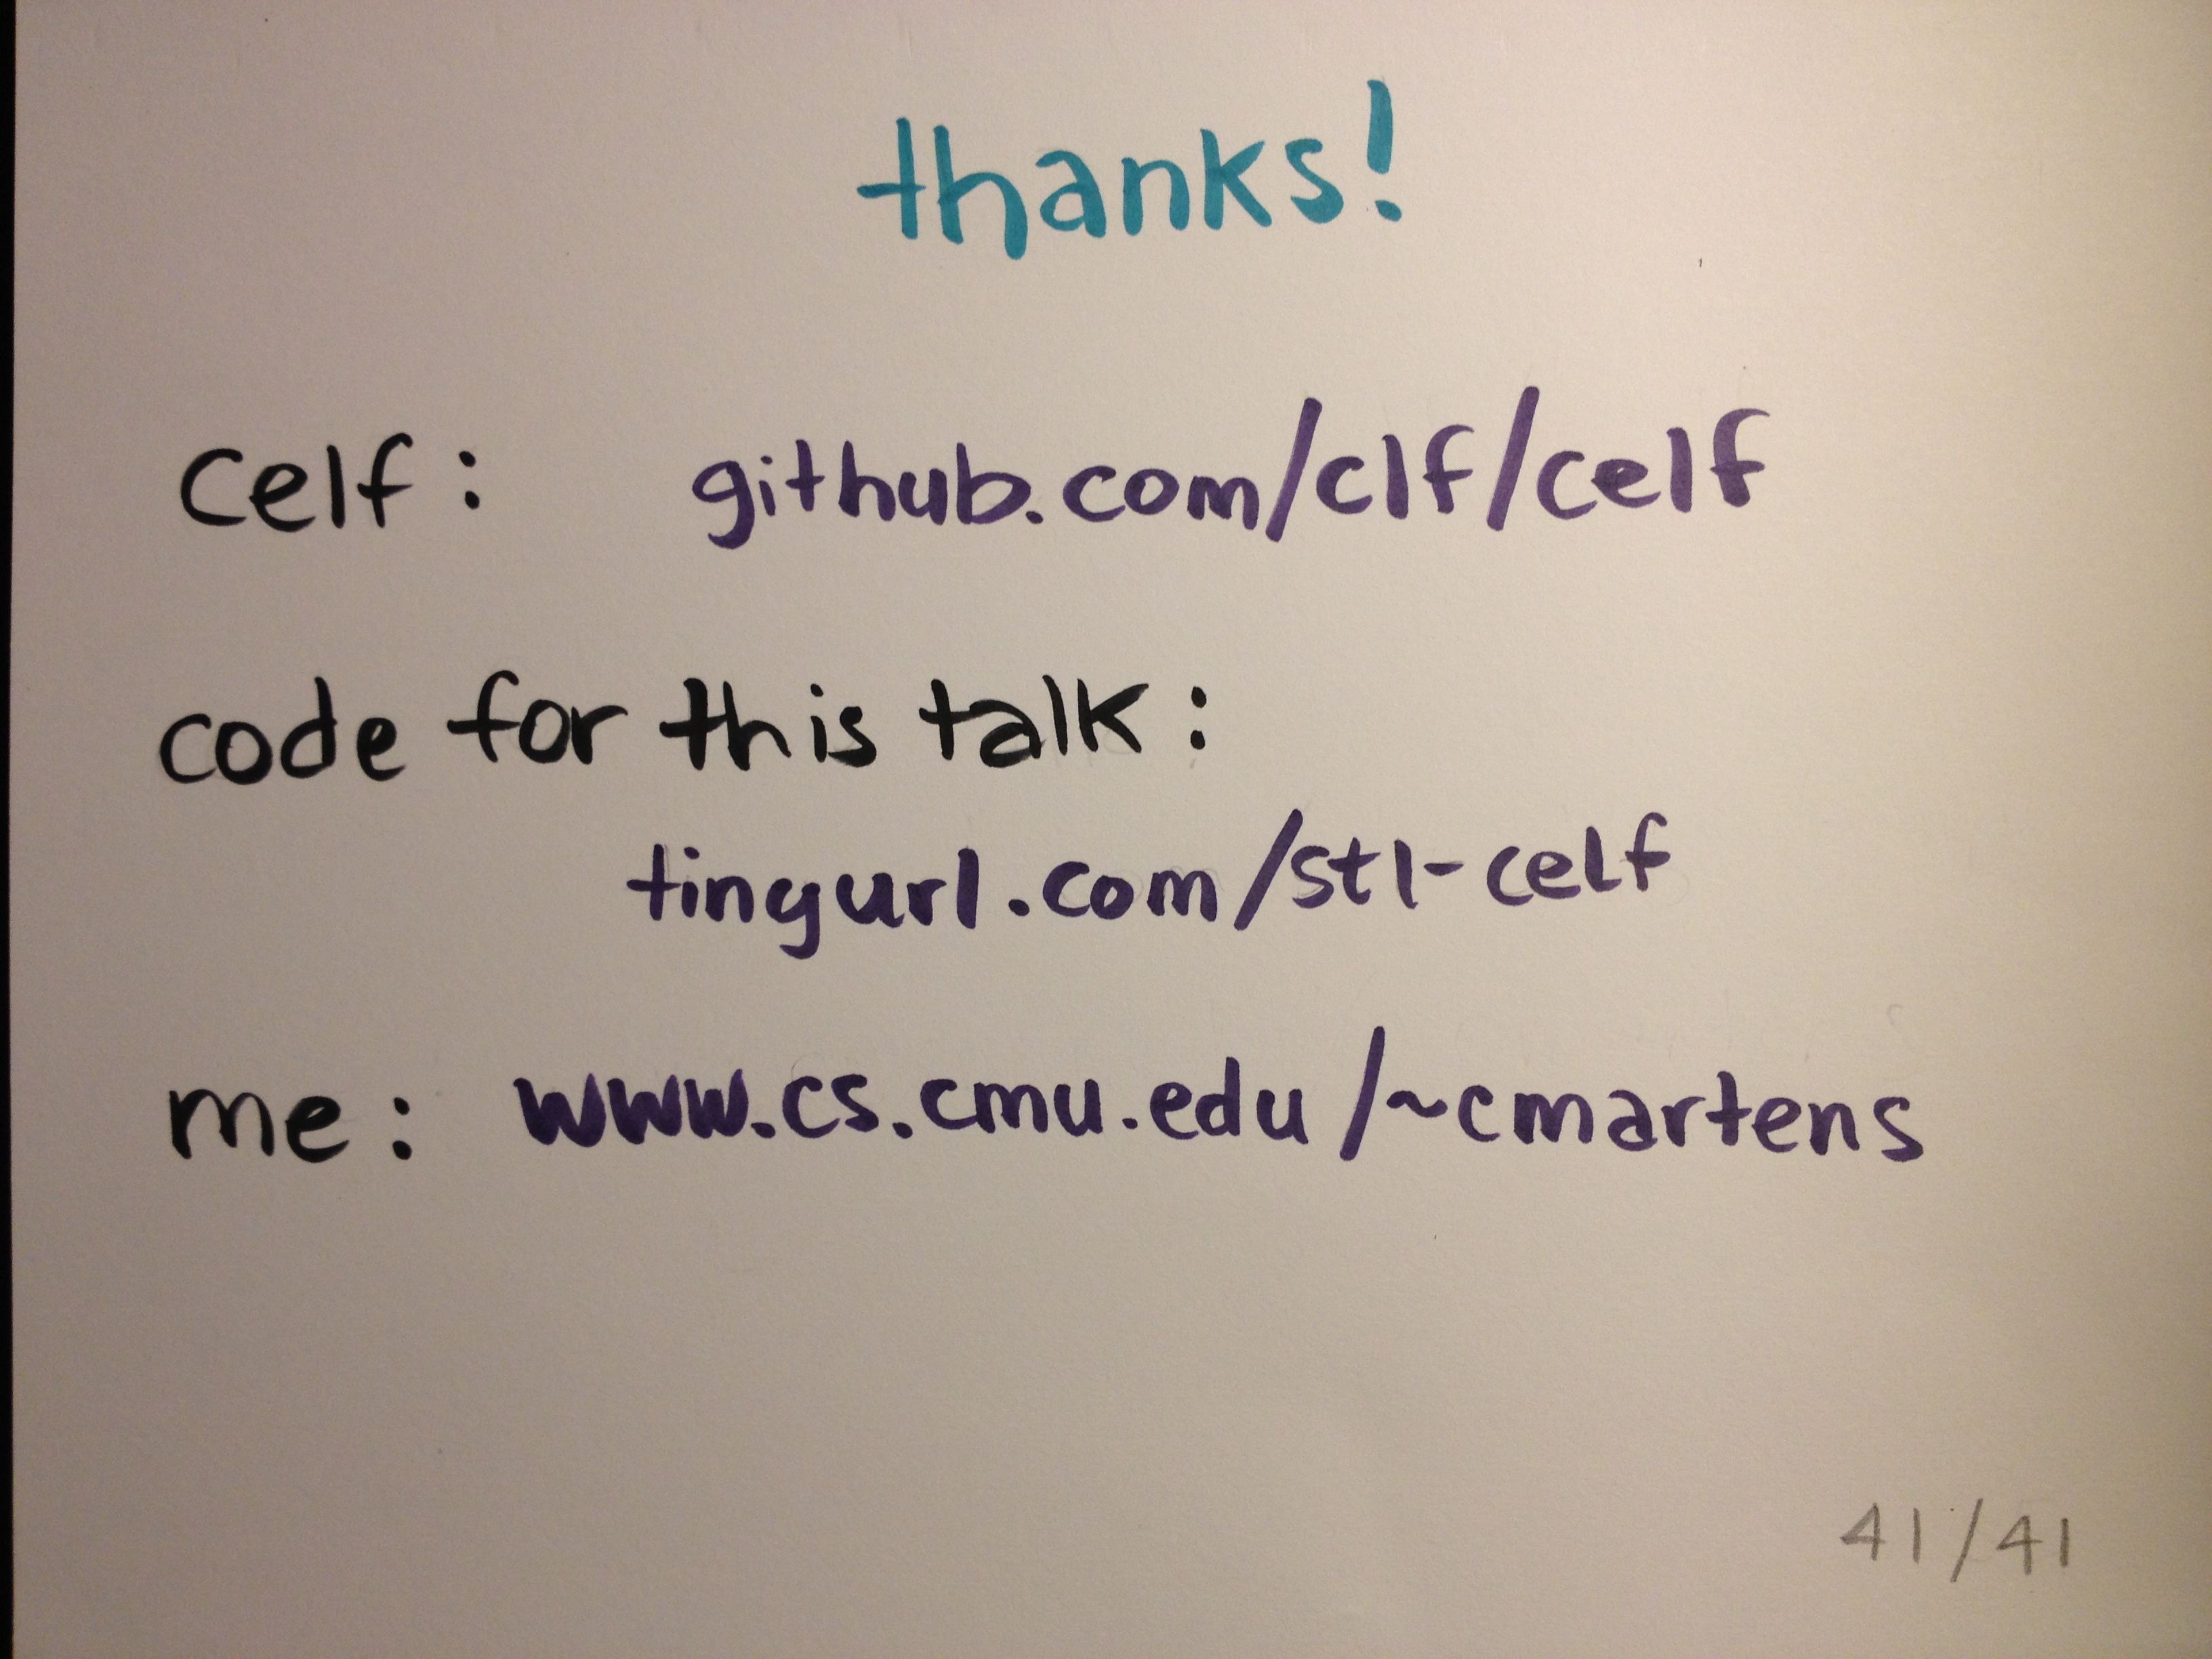 thanks!
celf: github.com/clf/celf
code for this talk:
tinyurl.com/stl-celf
me: www.cs.cmu.edu/~cmartens
41/41